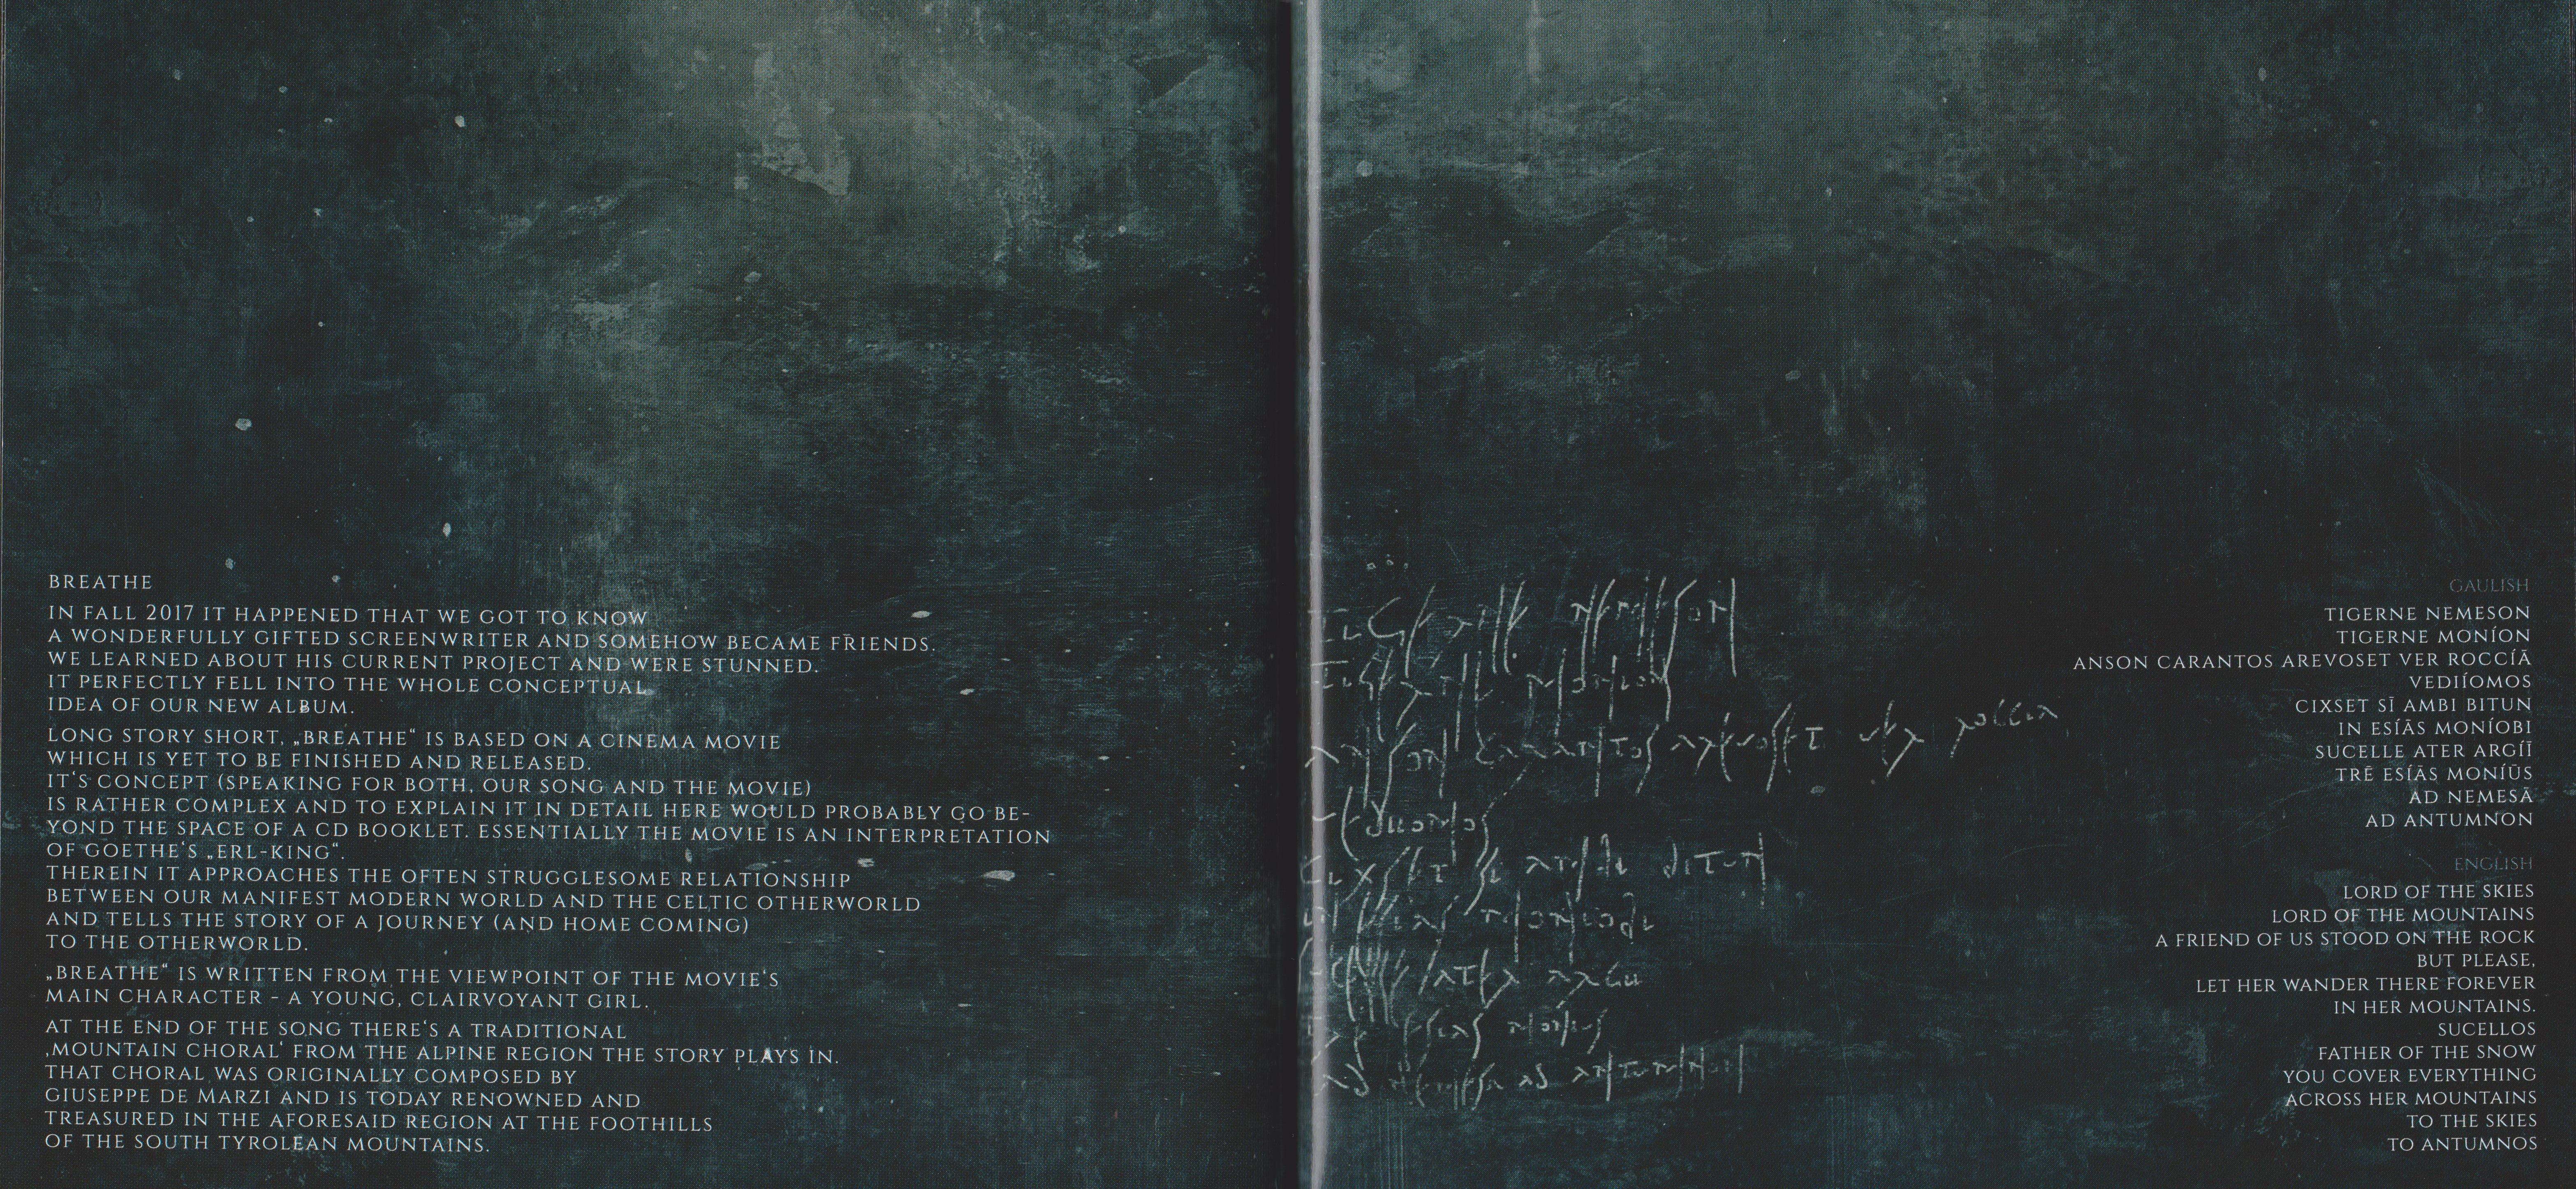 BREATHE
IN FALL 2017 IT HAPPENED THAT WE GOT TO KNOW
A WONDERFULLY GIFTED SCREENWRITER AND SOMEHOW BECAME FRIENDS.
WE LEARNED ABOUT HIS CURRENT PROJECT AND WERE STUNNED.
IT PERFECTLY FELL INTO THE WHOLE CONCEPTUAL
IDEA OF OUR NEW ALBUM.
LONG STORY SHORT, „BREATHE“ IS BASED ON A CINEMA MOVIE
WHICH IS YET TO BE FINISHED AND RELEASED.
IT‘S CONCEPT (SPEAKING FOR BOTH, OUR SONG AND THE MOVIE)
IS RATHER COMPLEX AND TO EXPLAIN IT IN DETAIL HERE WOULD PROBABLY GO BE-
YOND THE SPACE OF A CD BOOKLET. ESSENTIALLY THE MOVIE IS AN INTERPRETATION
OF GOETHE‘S „ERL-KING“.
THEREIN IT APPROACHES THE OFTEN STRUGGLESOME RELATIONSHIP
BETWEEN OUR MANIFEST MODERN WORLD AND THE CELTIC OTHERWORLD
AND TELLS THE STORY OF A JOURNEY (AND HOME COMING)
TO THE OTHERWORLD.
„BREATHE“ IS WRITTEN FROM THE VIEWPOINT OF THE MOVIE‘S
MAIN CHARACTER - A YOUNG, CLAIRVOYANT GIRL.
AT THE END OF THE SONG THERE‘S A TRADITIONAL
‚MOUNTAIN CHORAL‘ FROM THE ALPINE REGION THE STORY PLAYS IN.
THAT CHORAL WAS ORIGINALLY COMPOSED BY
GIUSEPPE DE MARZI AND IS TODAY RENOWNED AND
TREASURED IN THE AFORESAID REGION AT THE FOOTHILLS
OF THE SOUTH TYROLEAN MOUNTAINS.
GAULISH
TIGERNE NEMESON
TIGERNE MONÍON
ANSON CARANTOS AREVOSET VER ROCCÍĀ
VEDIÍOMOS
CIXSET SĪ AMBI BITUN
IN ESÍĀS MONÍOBI
SUCELLE ATER ARGÍĪ
TRĒ ESÍĀS MONÍŪS
AD NEMESĀ
AD ANTUMNON
ENGLISH
LORD OF THE SKIES
LORD OF THE MOUNTAINS
A FRIEND OF US STOOD ON THE ROCK
BUT PLEASE,
LET HER WANDER THERE FOREVER
IN HER MOUNTAINS.
SUCELLOS
FATHER OF THE SNOW
YOU COVER EVERYTHING
ACROSS HER MOUNTAINS
TO THE SKIES
TO ANTUMNOS